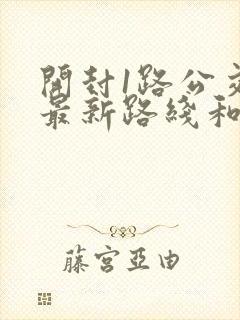 開封1路公交
最新路綫和
藤宮亞由